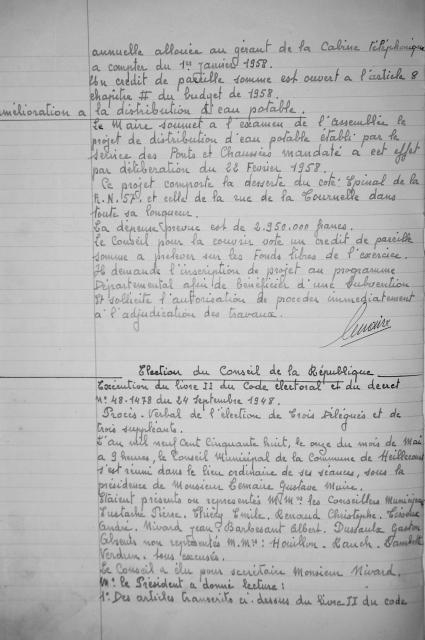 annuelle allouée au gérant de la Cabine Téléphonique
a compter du 1er janvier 1958.
Un crédit de pareille somme est ouvert a l'article 8
chapitre # du budget de 1958.
mélioration a la distribution d'eau potable.
Le Maire soumet a l'examen de l'assemblée le
projet de distribution d'eau potable établi par le
service des Ponts et Chaussées mandaté a cet effet
par délibération du 22 Février 1958.
Ce projet comporte la desserte du côté: Epinal de la
R.N. 57, et celle de la rue de la Tournelle dans
toute sa longueur.
La dépense prévue est de 2.950.000 francs.
Le Conseil pour la couvrir vote un crédit de pareille
somme a prélever sur les Fonds libres de l'exercice.
Il demande l'inscription de projet au programme
Départemental afin de bénéficier d'une Subvention
Et sollicite l'autorisation de procéder immédiatement
a l'adjudication des travaux.
Lemaire
Election du Conseil de la République
Exécution du livre II du Code électoral et du décret
n° 48-1478 du 24 Septembre 1948.
Procès-Verbal de l'élection de Trois Délégués et de
trois suppléants.
L'an mil neuf cent Cinquante huit, le onze du mois de Mai
a 9 heures, le Conseil Municipal de la Commune de
s'est réuni dans le lieu ordinaire de ses séances, sous la
présidence de Monsieur Lemaire Gustave Maire.
Etaient présents ou représentés M.M.rs les Conseillers Municipaux
Eustache Pierre. Thiéry Emile. Renaud Christophe.
André. Nivard Jean. Barbesant Albert. Dussaulx Gaston
Absents non représentés M.Mrs: Houillon. Rauch.
Verdun. sous excusés.
Le Conseil a élu pour secrétaire Monsieur Nivard.
Mr le Président a donné lecture:
1° Des articles transcrits ci-dessus du livre II du code